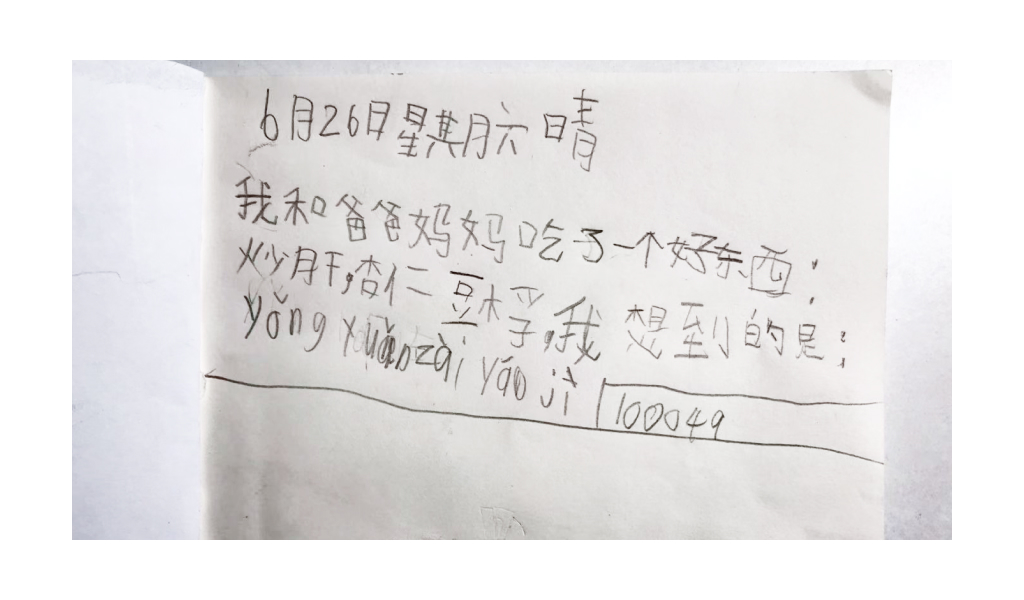 6月26日星期六 晴
我和爸爸妈妈吃了一个好东西:
炒肝,杏仁豆桴,我想到的是:
yǒng xuǎnzài yáo jì 100049